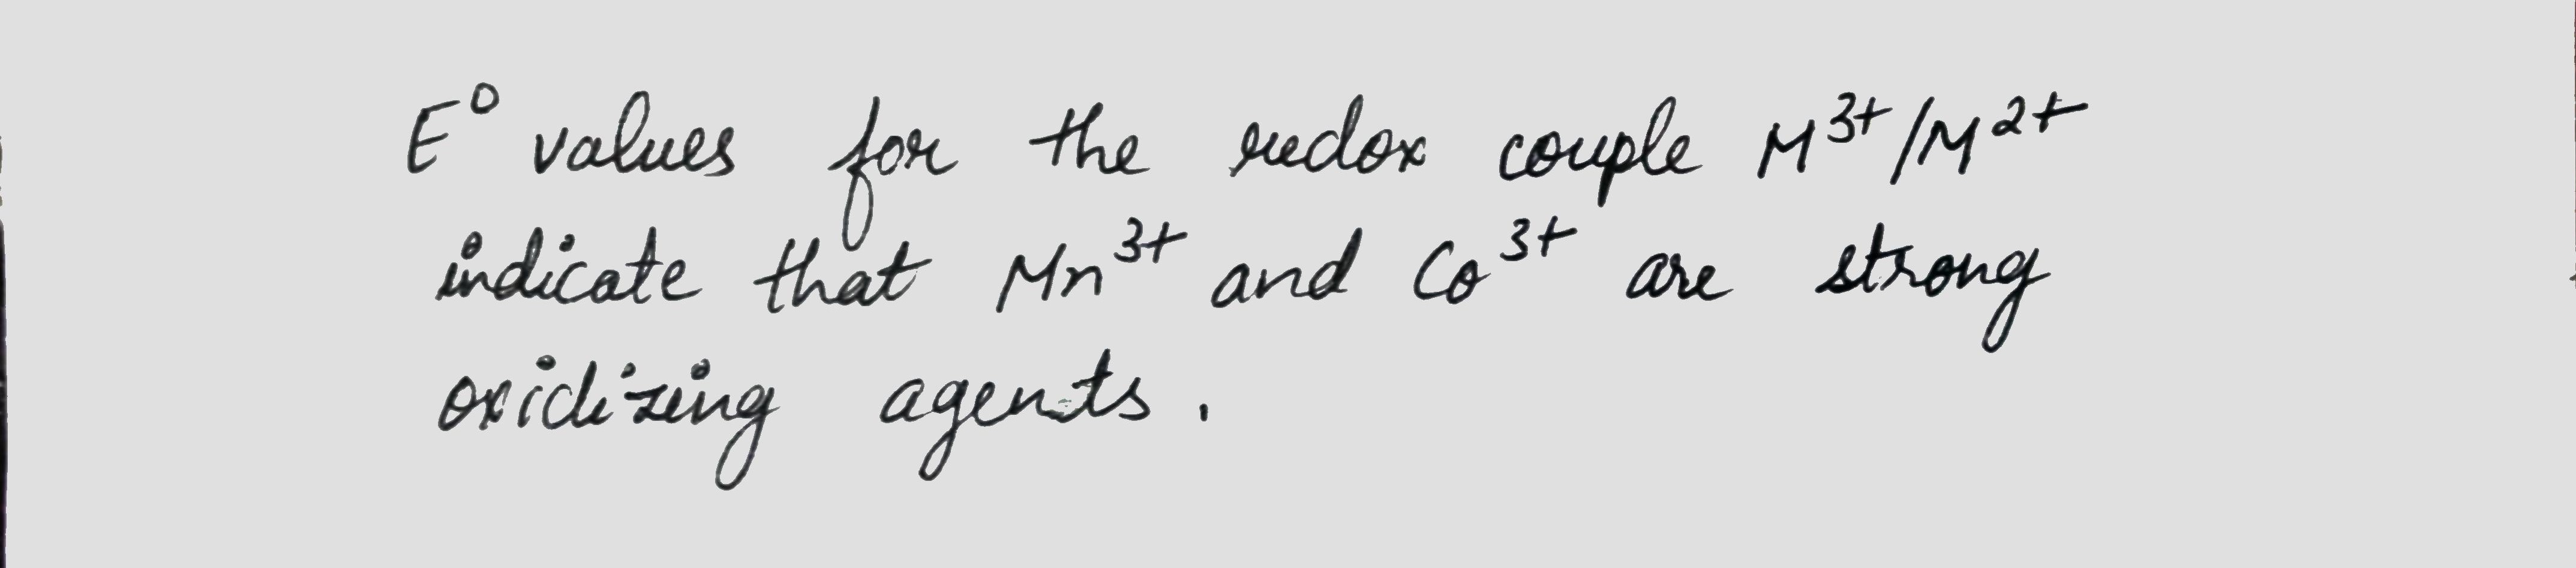 E⁰ values for the redox couple M³⁺/M²⁺
indicate that Mn³⁺ and Co³⁺ are strong
oxidizing agents.